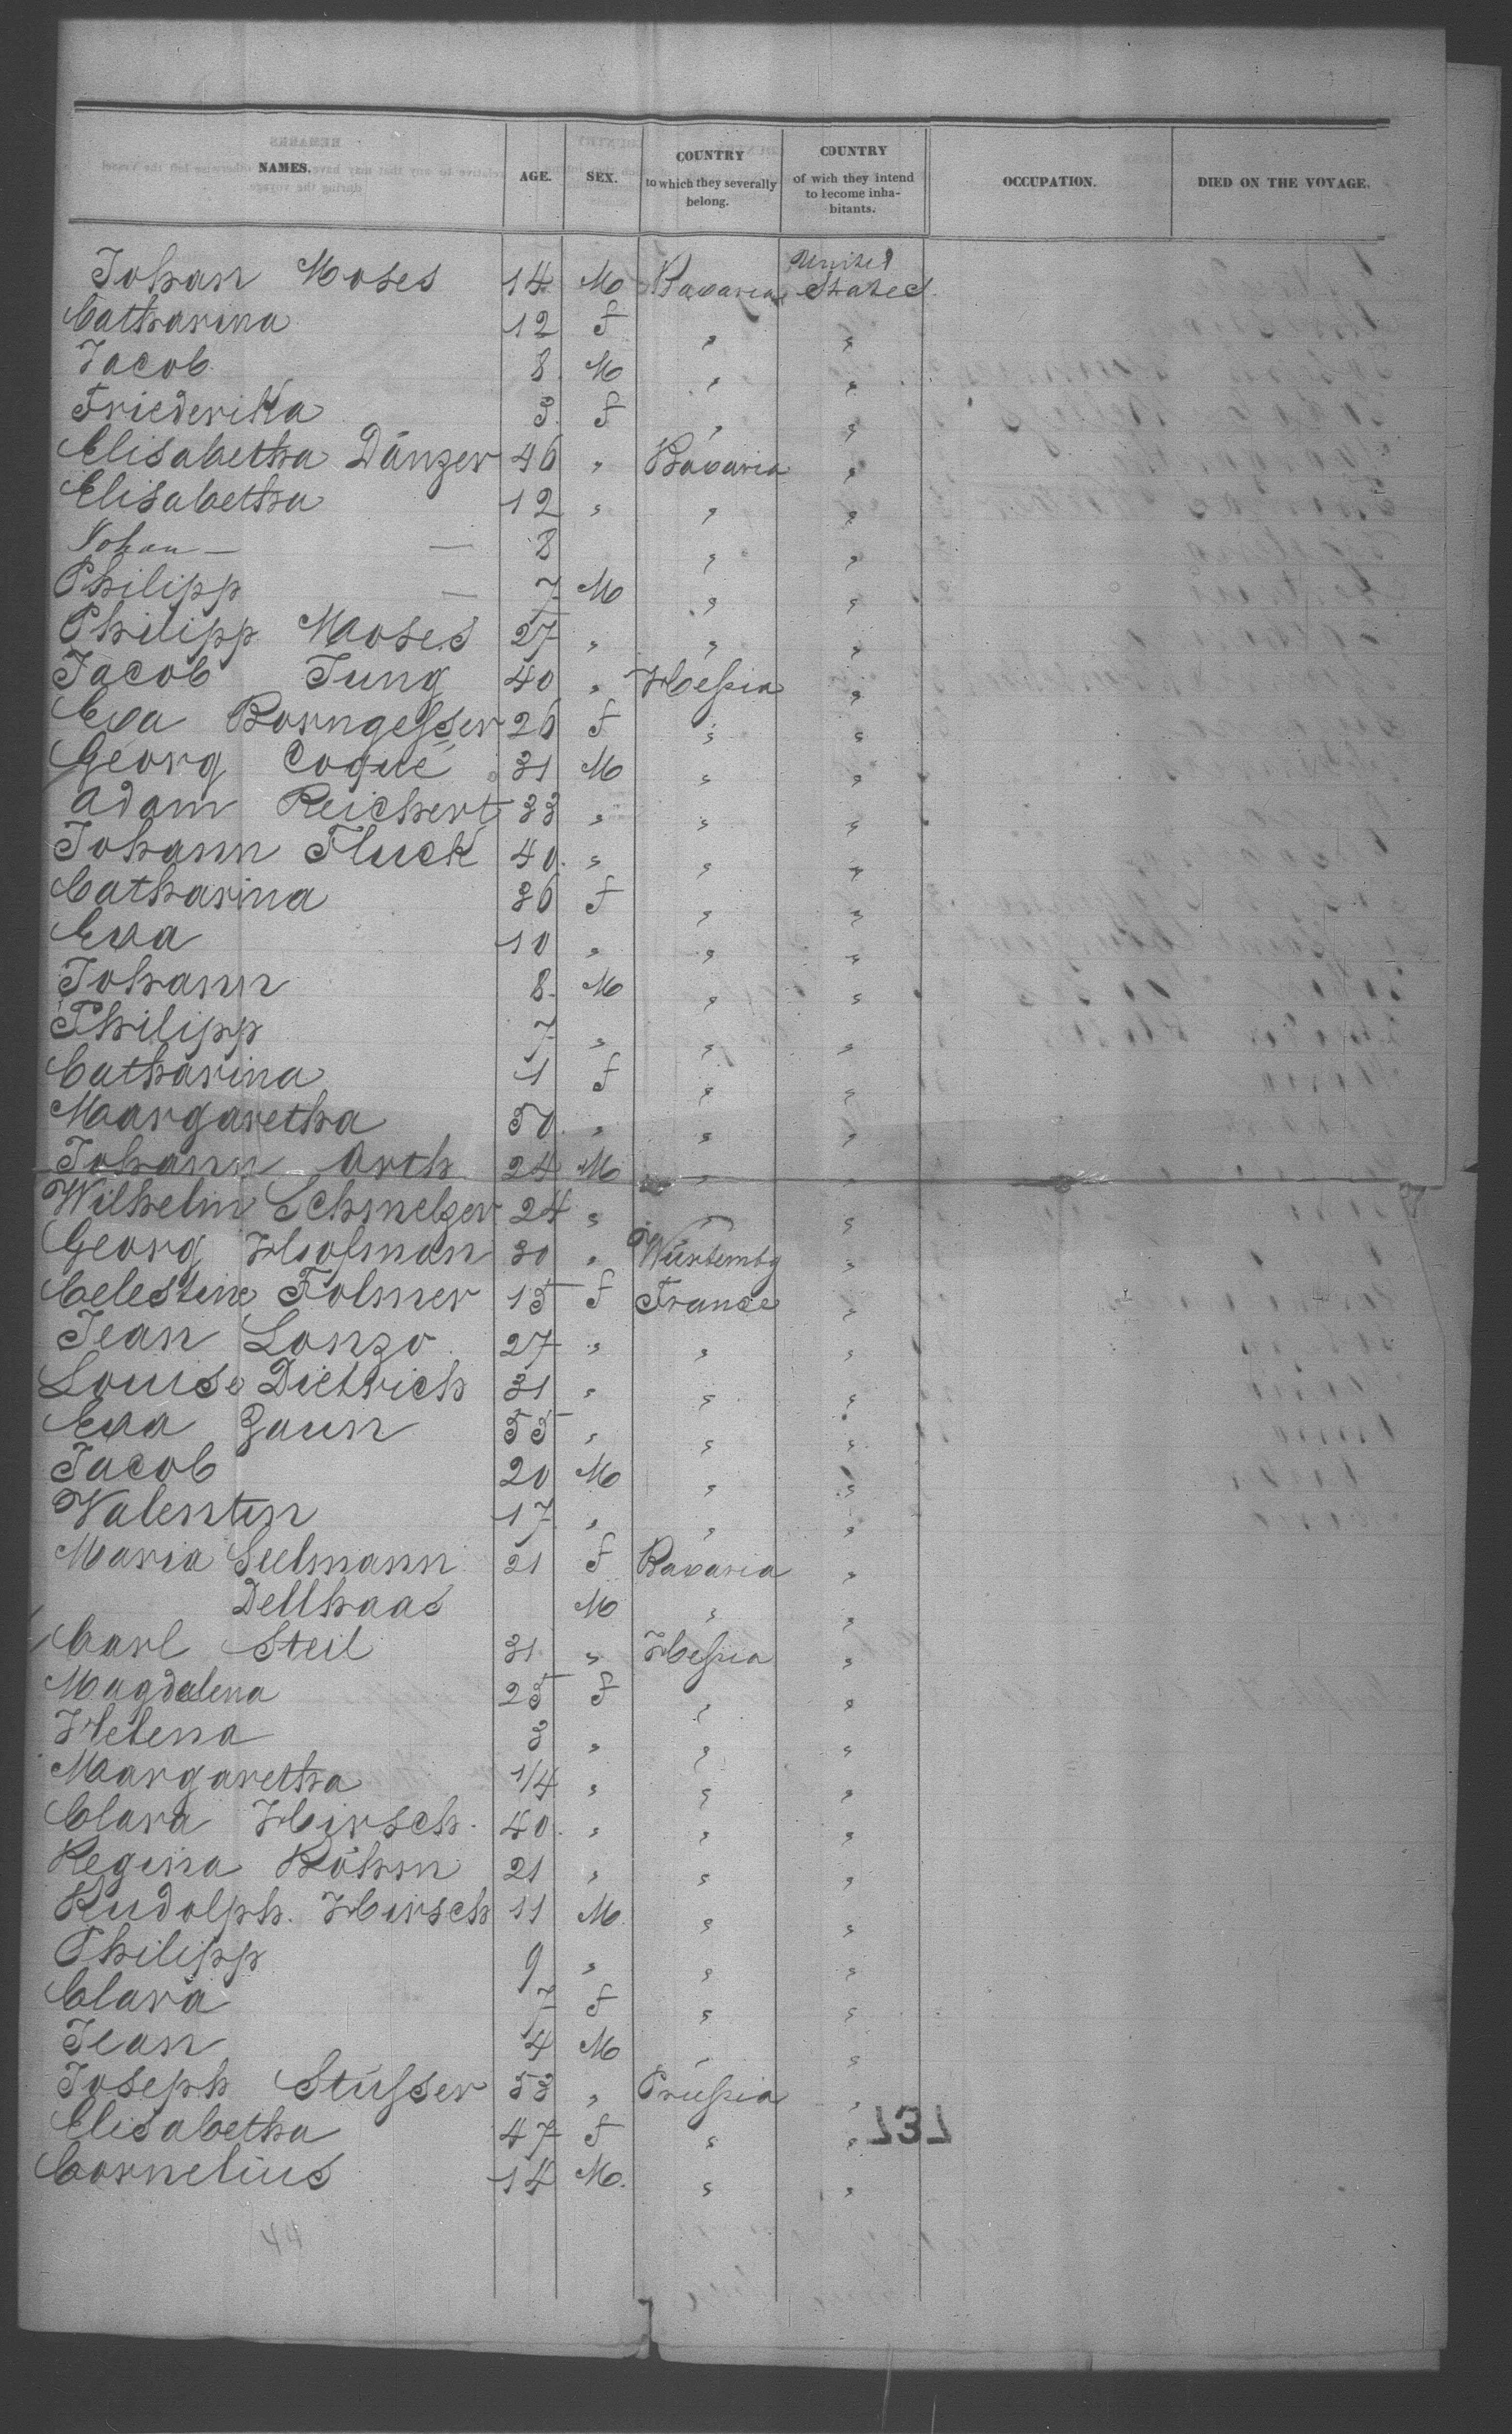 NAMES. AGE. SEX. COUNTRY to which they severally belong. COUNTRY of wich they intend to become inha-bitants. OCCUPATION. DIED ON THE VOYAGE.
Johan Moses 14 M Bavaria United States
Catharina 12 F " "
Jacob 8 M " "
Friederika 3 F " "
Elisabetha Dänzer 46 " Bavaria "
Elisabetha 12 " " "
Johan — — 8 " "
Philipp — 7 M " "
Philipp Moses 27 " " "
Jacob Jung 40 " Heſsia "
Eva Borngeſser 26 F " "
Georg Coqué 31 M " "
Adam Reichert 33 " " "
Johann Fluck 40 " " "
Catharina 36 F " "
Eva 10 " " "
Johann 8 M " "
Philipp 7 " " "
Catharina 1 F " "
Margaretha 50 " " "
Johann Arth 24 M " "
Wilhelm Schmelzer 24 " " "
Georg Hofman 30 " Würtembg "
Celestine Folmer 15 F France "
Jean Lonzo 27 " " "
Louise Dietrich 31 " " "
Eva Zaun 55 " " "
Jacob 20 M " "
Valentin 17 " " "
Maria Seelmann 21 F Bavaria "
Dellhaas M " "
Carl Steil 31 " Heſsia "
Magdalena 25 F " "
Helena 3 " " "
Margaretha 1/4 " " "
Clara Hirsch 40 " " "
Regina Böhm 21 " " "
Rudolph Hirsch 11 M " "
Philipp 9 " " "
Clara 7 F " "
Jean 4 M " "
Joseph Stüſser 53 " Pruſsia "
Elisabetha 47 F " "
Cornelius 14 M. " "
737
44